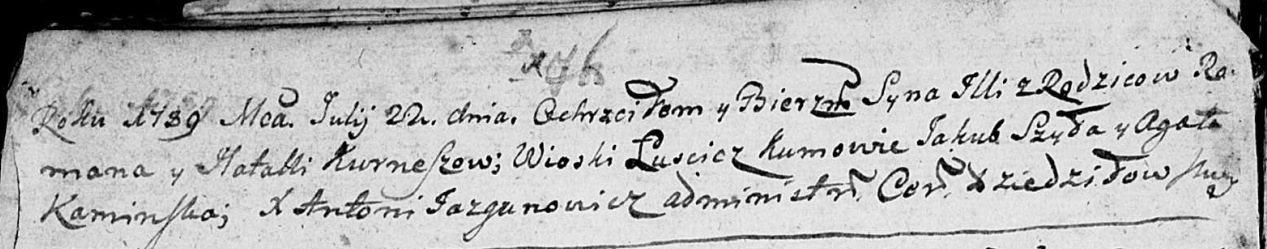 Roku 1789 Mca. Julij 22. dnia. Ochrzciłem y Bierzm Syna Illi z Rodzicow Ro-
mana y Natalli Kurneszow; Wioski Luscicz Kumowie Jakub Szyła y Agata
Kaminska; X Antoni Jazgunowicz administr. Cer. Dziedziłow